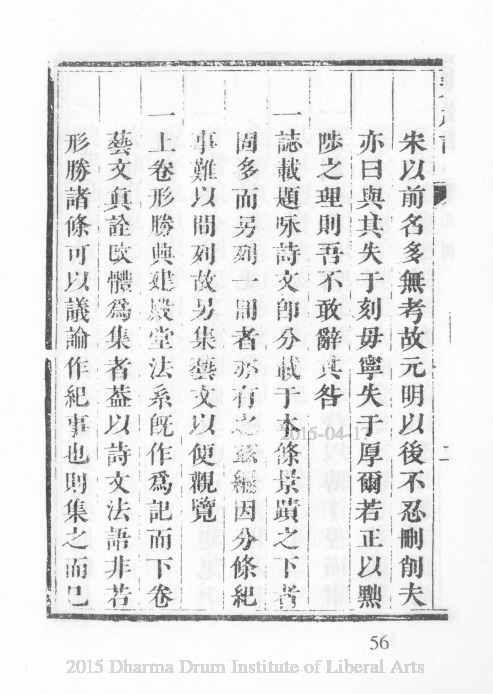 朱以前名多無考故元明以後不忍刪削夫
亦曰與其失于刻毋寧失于厚爾若正以黜
陟之理則吾不敢辭其咎
一誌載題咏詩文卽分載于本條景蹟之下者
固多而另列一門者亦有之茲編因分條紀
事難以間列故另集藝文以便觀覽
一上卷形勝興建殿堂法系旣作爲記而下卷
藝文眞詮敺體爲集者葢以詩文法語非若
形勝諸條可以議論作紀事也則集之而已
2015-04-17
56
2015 Dharma Drum Institute of Liberal Arts